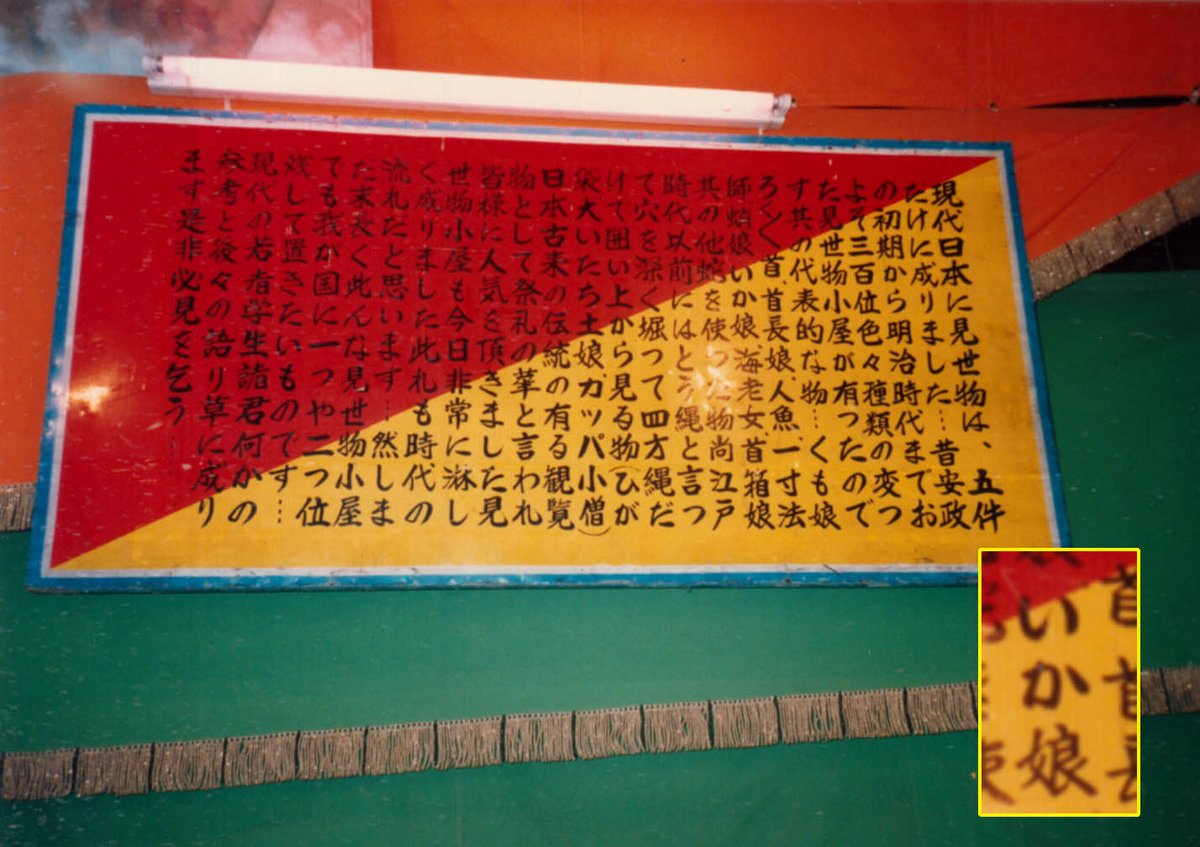 現代日本に見世物は、五件
たけに成りました…昔安政
の初期から明治時代までお
よそ三百位色々種類の変つ
た見世物小屋が有つたので
す其の代表的な物…くも娘
ろくく首、首長娘、人魚、一寸法
師蛸娘いか娘、海老女、首箱娘
其の他蛇を使つた物尚江戸
時代以前にはとう縄と言つ
て穴を深く堀つて四方縄だ
けて囲い上から見る物(ひが
袋大いたち土娘ガッパ小僧)
日本古来の伝統の有る観覧
物として祭礼の華と言われ
皆様に人気を頂きました見
世物小屋も今日非常に淋し
く成りました此れも時代の
流れだと思います…然しま
た末長く此んな見世物小屋
でも我が国に一つや二つ位
残して置きたいものです…
現代の若者学生諸君何かの
参考と後々の語り草に成り
ます是非必見を乞う……
首首長
いか娘
使